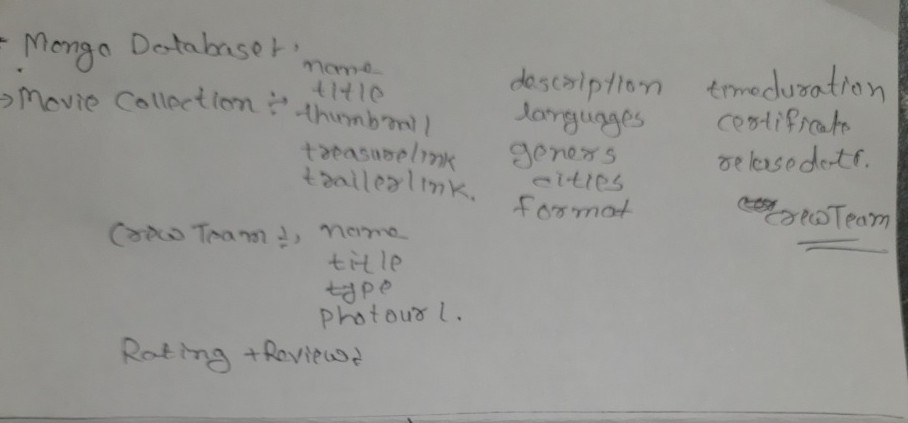 Mongo Database:
name
title
→ Movie Collection : thumbnail
treasurelink
trailerlink.
description
languages
geners
cities
format
timeduration
certificate
releasedate.
CrewTeam
Crew Team : name
title
type
photourl.
Rating + Review: